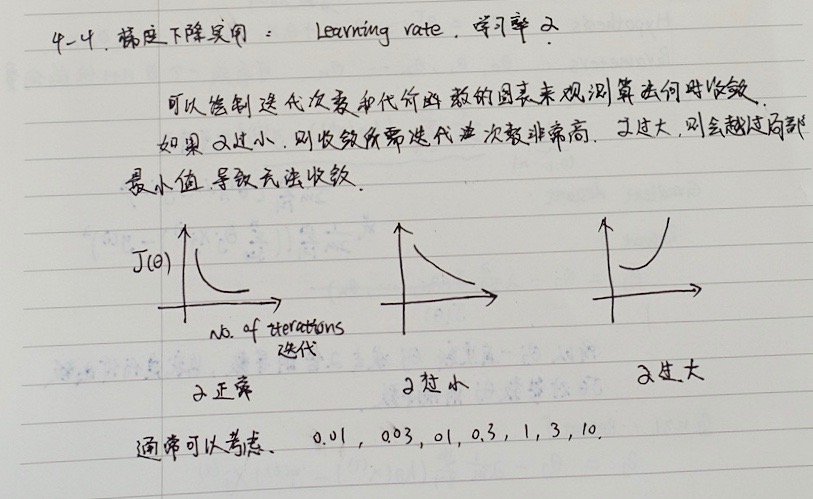 4-4. 梯度下降实用： Learning rate. 学习率 α
可以绘制迭代次数和代价函数的图表来观测算法何时收敛.
如果 α过小, 则收敛所需迭代次数非常高. α过大, 则会越过局部
最小值 导致无法收敛.
J(θ)
No. of iterations
迭代
α正常
α过小
α过大
通常可以考虑. 0.01, 0.03, 01, 0.3, 1, 3, 10.